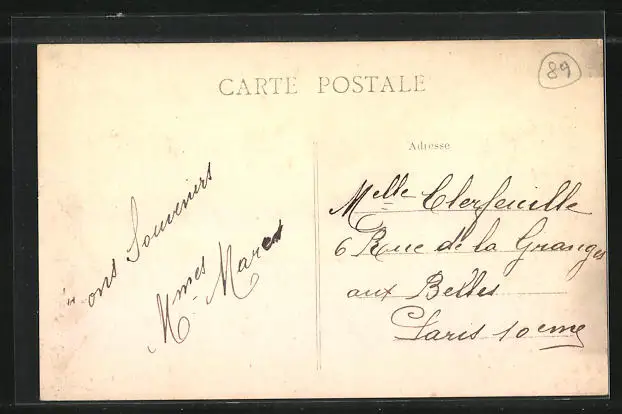 CARTE POSTALE
89
Adresse
Bons Souvenirs
Mmes Maret
Melle Clerfeuille
6 Rue de la Granges
aux Belles
Paris 10eme